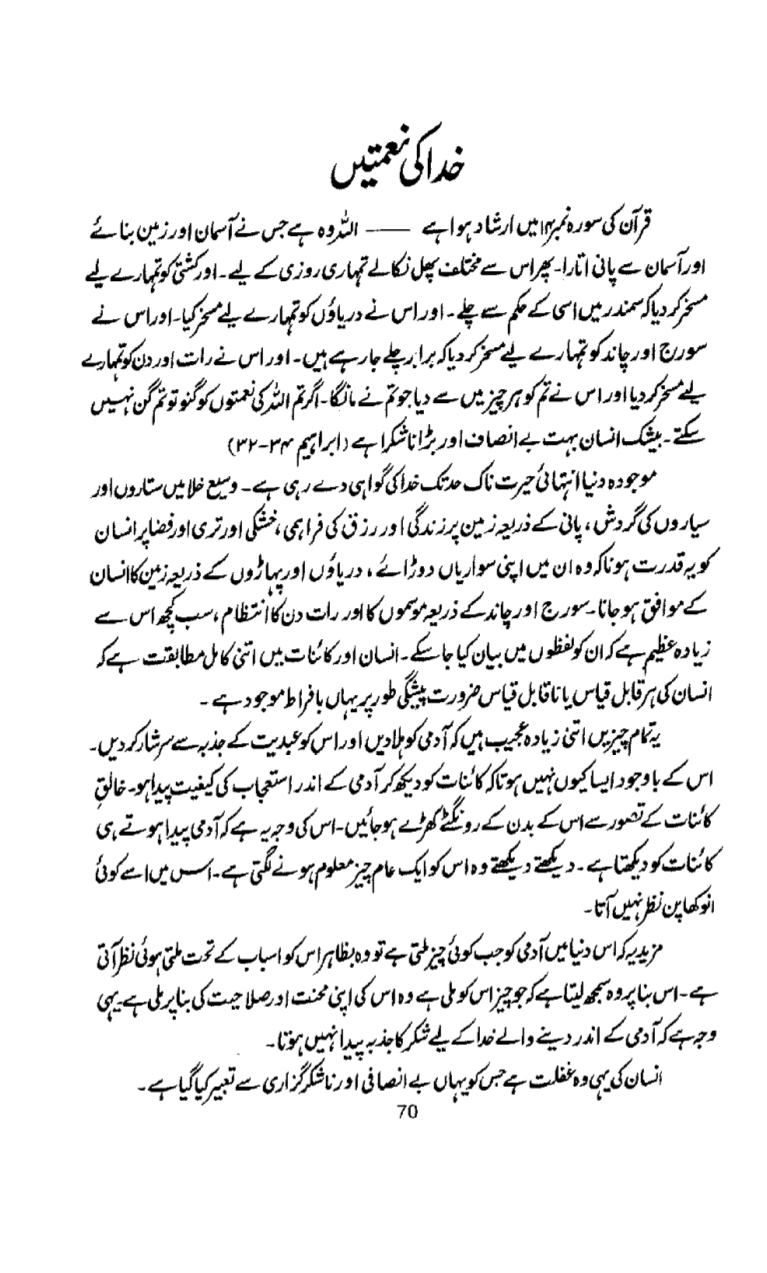 خدا کی نعمتیں
قرآن کی سورہ نمبر ۱۴ میں ارشاد ہوا ہے —— اللہ وہ ہے جس نے آسمان اور زمین بنائے
اور آسمان سے پانی اتارا۔ پھر اس سے مختلف پھل نکالے تمہاری روزی کے لیے۔ اور کشتی کو تمہارے لیے
مسخر کر دیا کہ سمندر میں اسی کے حکم سے چلے۔ اور اس نے دریاؤں کو تمہارے لیے مسخر کیا۔ اور اس نے
سورج اور چاند کو تمہارے لیے مسخر کر دیا کہ برابر چلے جا رہے ہیں۔ اور اس نے رات اور دن کو تمہارے
لیے مسخر کر دیا اور اس نے تم کو ہر چیز میں سے دیا جو تم نے مانگا۔ اگر تم اللہ کی نعمتوں کو گنو تو تم گن نہیں
سکتے۔ بیشک انسان بہت بے انصاف اور بڑا ناشکرا ہے (ابراہیم ۳۴-۳۲)
موجودہ دنیا انتہائی حیرت ناک حد تک خدا کی گواہی دے رہی ہے۔ وسیع خلا میں ستاروں اور
سیاروں کی گردش، پانی کے ذریعہ زمین پر زندگی اور رزق کی فراہمی، خشکی اور تری اور فضا پر انسان
کو یہ قدرت ہونا کہ وہ ان میں اپنی سواریاں دوڑائے، دریاؤں اور پہاڑوں کے ذریعہ زمین کا انسان
کے موافق ہو جانا۔ سورج اور چاند کے ذریعہ موسموں کا اور رات دن کا انتظام، سب کچھ اس سے
زیادہ عظیم ہے کہ ان کو لفظوں میں بیان کیا جا سکے۔ انسان اور کائنات میں اتنی کامل مطابقت ہے کہ
انسان کی ہر قابل قیاس یا ناقابل قیاس ضرورت پیشگی طور پر یہاں بافراط موجود ہے۔
یہ تمام چیزیں اتنی زیادہ عجیب ہیں کہ آدمی کو ہلا دیں اور اس کو عبدیت کے جذبہ سے سرشار کر دیں۔
اس کے باوجود ایسا کیوں نہیں ہوتا کہ کائنات کو دیکھ کر آدمی کے اندر استعجاب کی کیفیت پیدا ہو۔ خالق
کائنات کے تصور سے اس کے بدن کے رونگٹے کھڑے ہو جائیں۔ اس کی وجہ یہ ہے کہ آدمی پیدا ہوتے ہی
کائنات کو دیکھتا ہے۔ دیکھتے دیکھتے وہ اس کو ایک عام چیز معلوم ہونے لگتی ہے۔ اس میں اسے کوئی
انوکھا پن نظر نہیں آتا۔
مزید یہ کہ اس دنیا میں آدمی کو جب کوئی چیز ملتی ہے تو وہ بظاہر اس کو اسباب کے تحت ملتی ہوئی نظر آتی
ہے۔ اس بنا پر وہ سمجھ لیتا ہے کہ جو چیز اس کو ملی ہے وہ اس کی اپنی محنت اور صلاحیت کی بنا پر ملی ہے۔ یہی
وجہ ہے کہ آدمی کے اندر دینے والے خدا کے لیے شکر کا جذبہ پیدا نہیں ہوتا۔
انسان کی یہی وہ غفلت ہے جس کو یہاں بے انصافی اور ناشکر گزاری سے تعبیر کیا گیا ہے۔
70